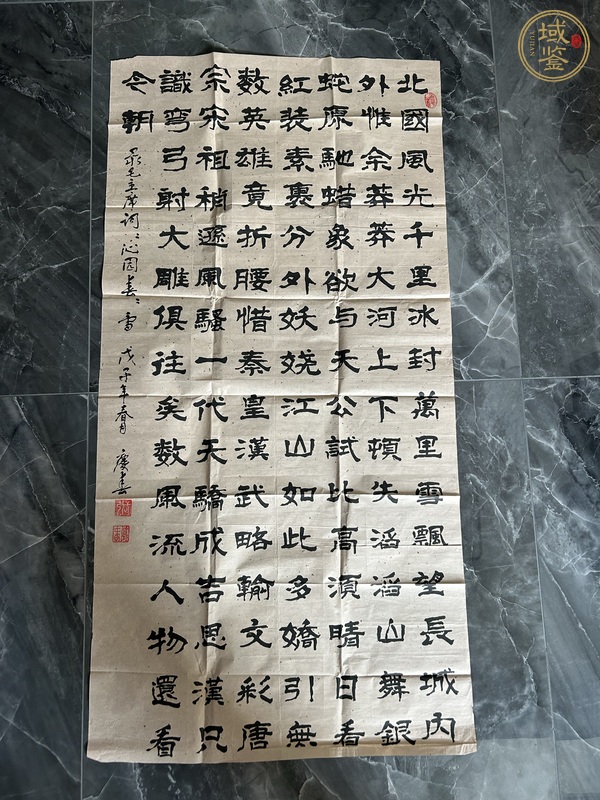 北國風光千里冰封萬里雪飄望長城內
外惟余莽莽大河上下頓失滔滔山舞銀
蛇原馳蜡象欲与天公試比高須晴日看
紅裝素裹分外妖娆江山如此多嬌引無
数英雄竟折腰惜秦皇漢武略輸文彩唐
宗宋祖稍遜風騷一代天驕成吉思漢只
識彎弓射大雕俱往矣数風流人物還看
今朝
录毛主席词:沁园春:雪 戊子年春月 庆春
域鉴
YUJIAN